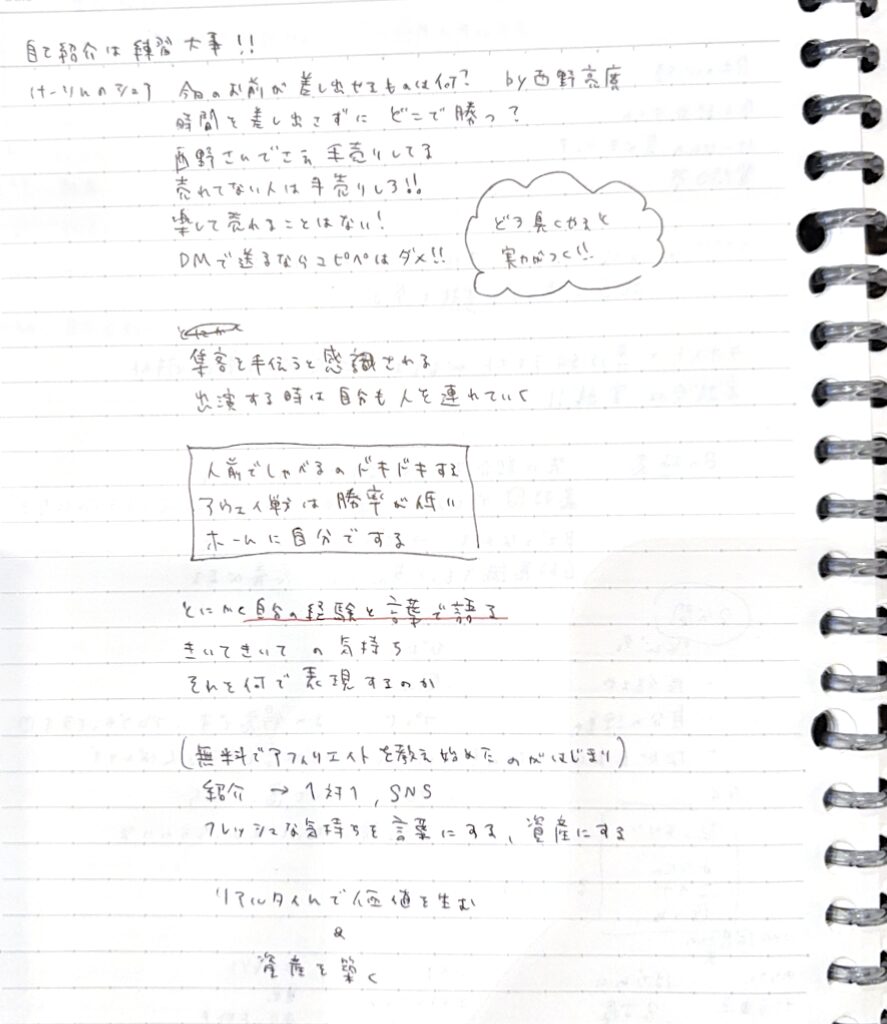 自己紹介は練習大事!!
けーりんのシェア 今日のお前が差し出せるものは何? by西野亮廣
時間を差し出さずに どこで勝つ?
西野さんでさえ手売りしてる
売れてない人は手売りしろ!!
楽して売れることはない!
DMで送るならコピペはダメ!!
どろ臭くやると
実力がつく!!
集客を手伝うと感謝される
出演する時は自分も人を連れていく
人前でしゃべるのドキドキする
アウェイ戦は勝率が低い
ホームに自分でする
とにかく自分の経験と言葉で語る
きいてきいての気持ち
それを何で表現するのか
(無料でアフィリエイトを教え始めたのがはじまり)
紹介 → 1対1, SNS
フレッシュな気持ちを言葉にする、資産にする
リアルタイムで価値を生む
&
資産を築く